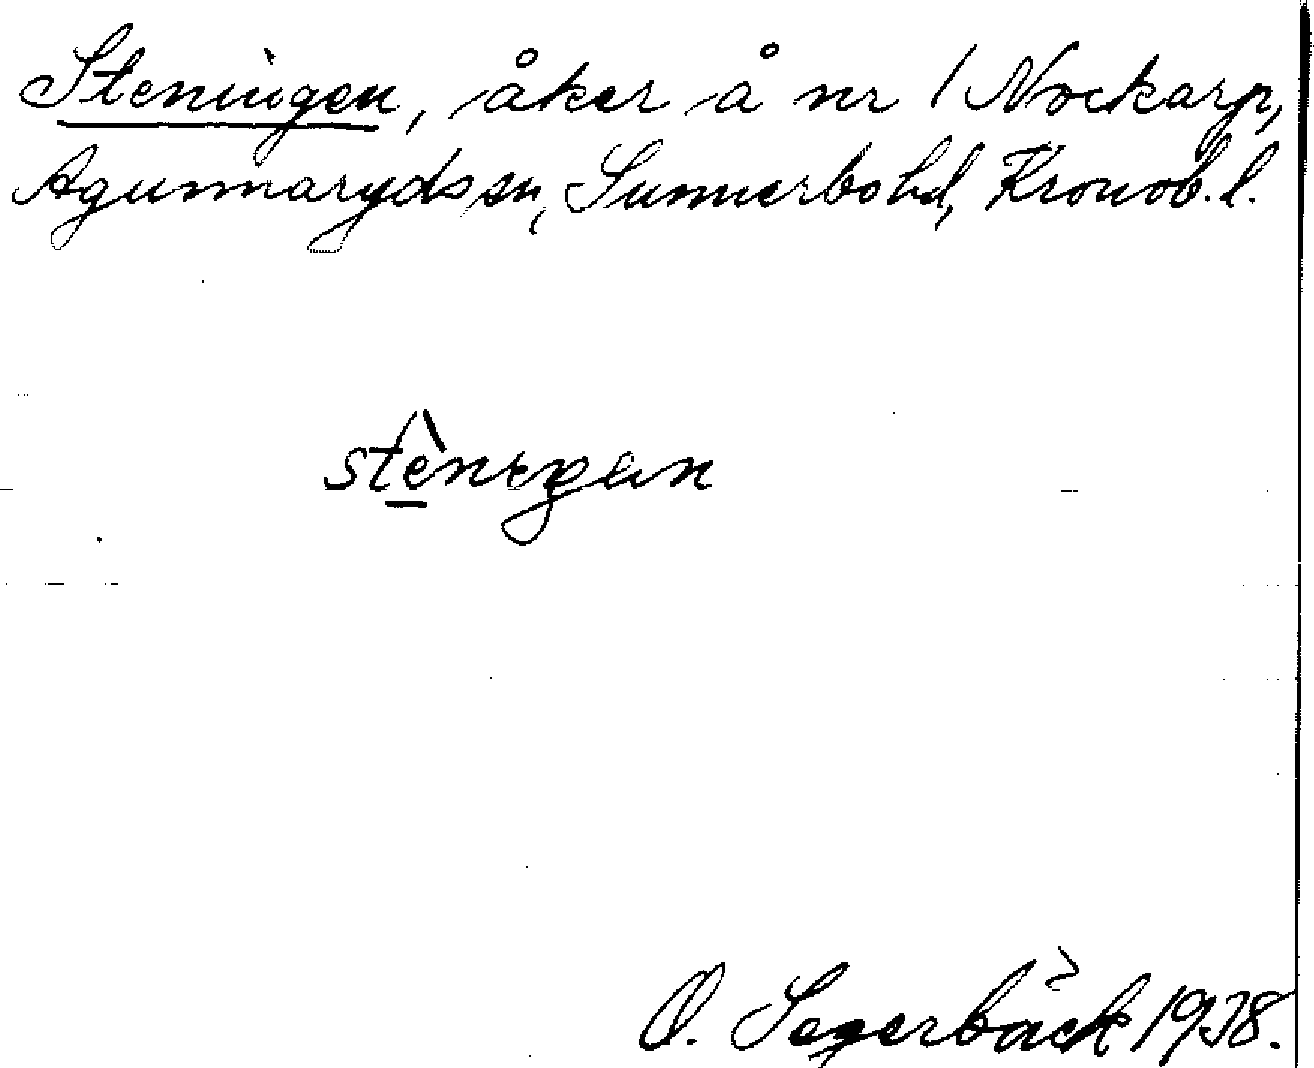 Steningen, åker å nr 1 Nockarp,
Agunnaryds sn, Sunnerbo hd, Kronob. l.
O. Segerbäck 1938.